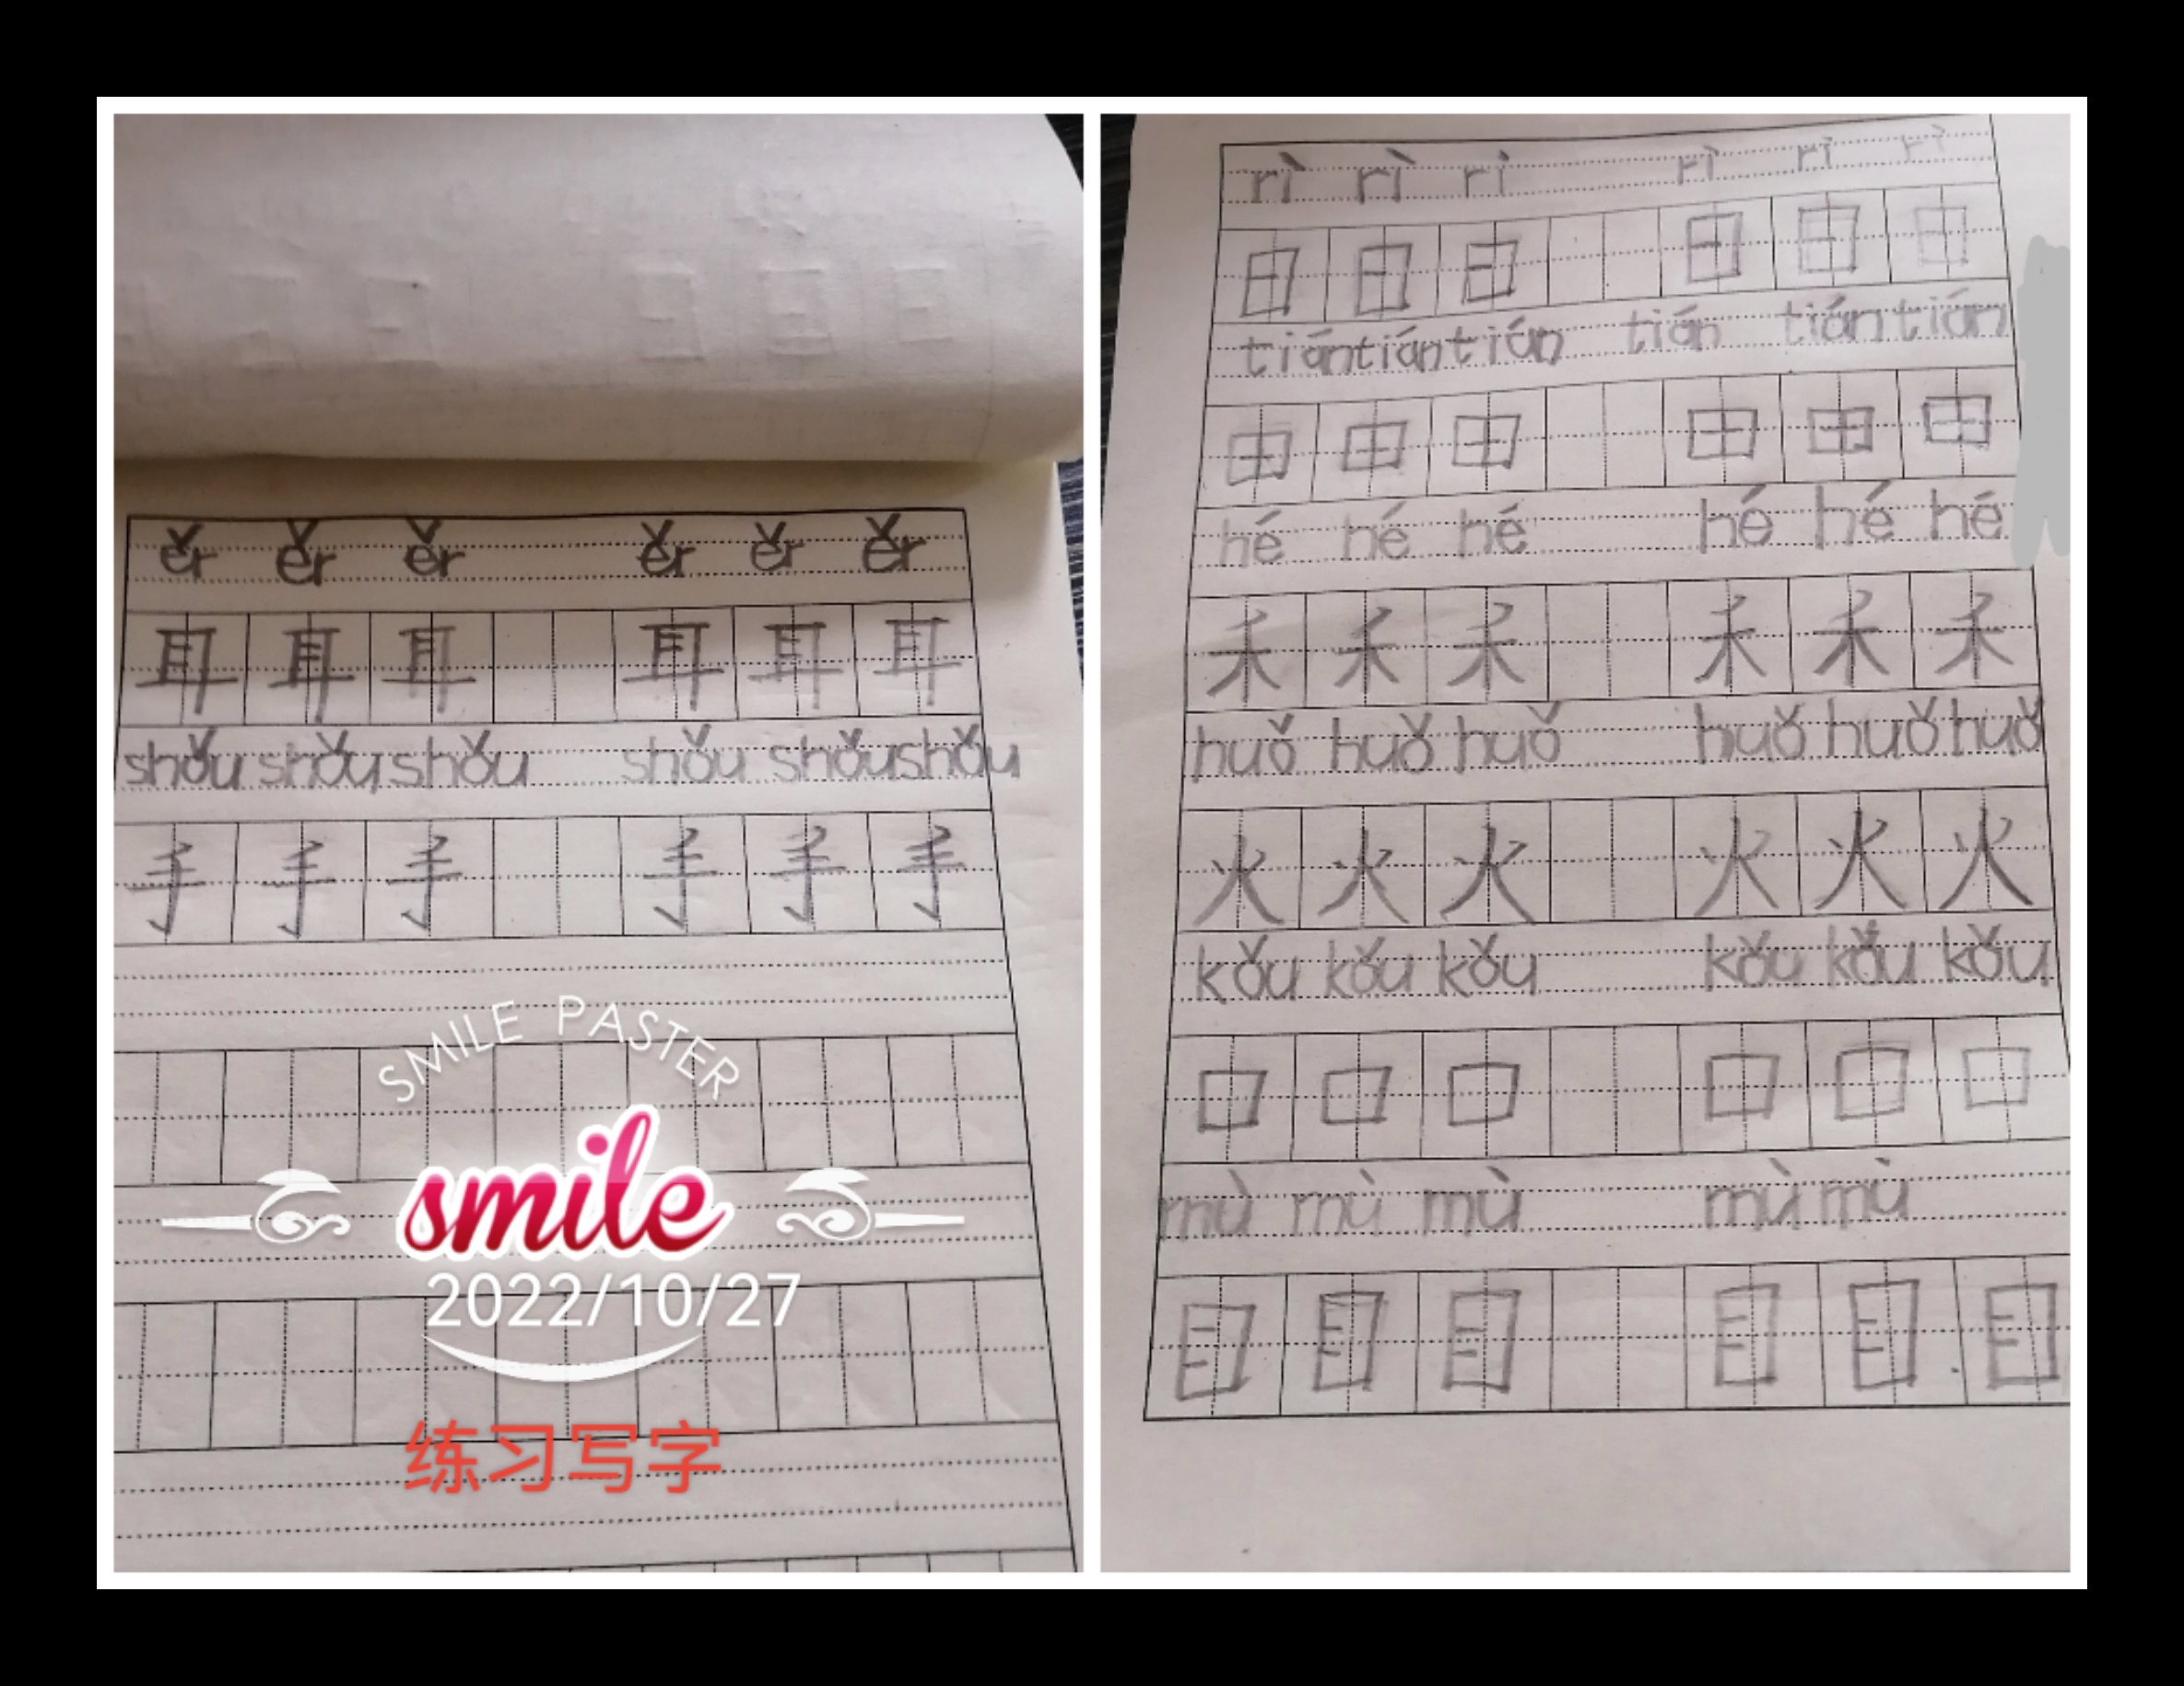 ěr ěr ěr ěr ěr ěr
耳 耳 耳 耳 耳 耳
shǒu shǒu shǒu shǒu shǒu shǒu
手 手 手 手 手 手
SMILE PASTER
smile
2022/10/27
练习写字
rì rì ri rì rì rì
日 日 日 日 日 日
tián tián tián tián tián tián
田 田 田 田 田 田
hé hé hé hé hé hé
禾 禾 禾 禾 禾 禾
huǒ huǒ huǒ huǒ huǒ huǒ
火 火 火 火 火 火
kǒu kǒu kǒu kǒu kǒu kǒu
口 口 口 口 口 口
mù mù mù mù mù
目 目 目 目 目 目